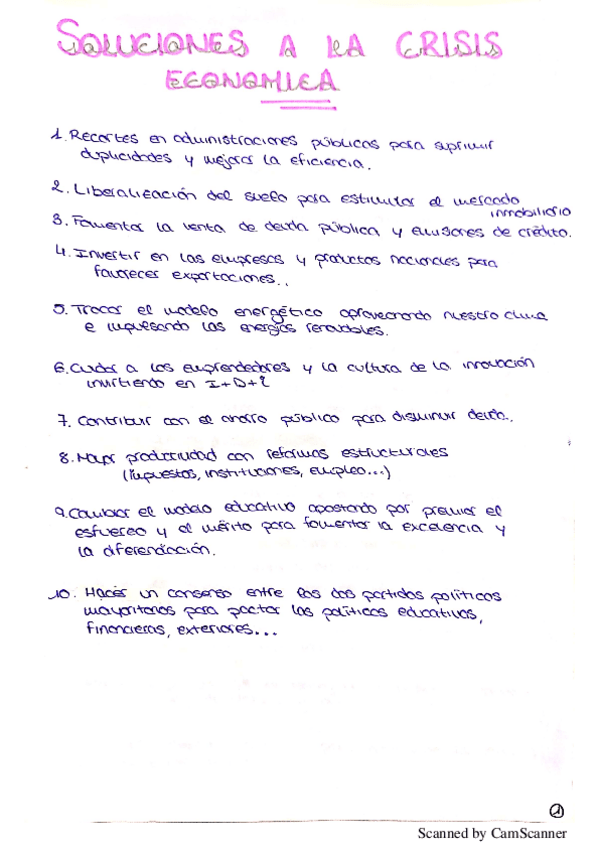 SOLUCIONES A LA CRISIS
ECONOMICA
1. Recortes en administraciones públicas para suprimir
duplicidades y mejorar la eficiencia.
2. Liberalización del suelo para estimular el mercado
inmobiliario
3. Fomentar la venta de deuda pública y emisiones de crédito.
4. Invertir en las empresas y productos nacionales para
favorecer exportaciones..
5. Trocar el modelo energético aprovechando nuestro clima
e impulsando las energías renovables.
6. Cuidar a los emprendedores y la cultura de la innovación
invirtiendo en I+D+i
7. Contribuir con el ahorro público para disminuir deuda.
8. Mayor productividad con reformas estructurales
(impuestos, instituciones, empleo...)
9. Cambiar el modelo educativo apostando por premiar el
esfuerzo y el mérito para fomentar la excelencia y
la diferenciación.
10. Hacer un consenso entre los dos partidos políticos
mayoritarios para pactar las políticas educativas,
financieras, exteriores...
1
Scanned by CamScanner